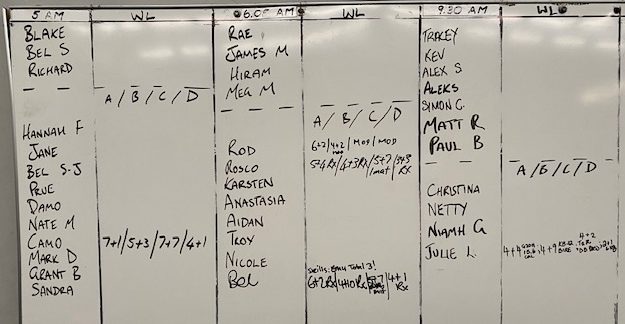 5 AM WL 6.05 AM WL 9.30 AM WL
BLAKE
BEL S
RICHARD
A / B / C / D
HANNAH F
JANE
BEL S.J
PRUE
DAMO
NATE M
CAMO 7+1/5+3/7+7/4+1
MARK D
GRANT B
SANDRA
RAE
JAMES M
HIRAM
MEG M
A / B / C / D
ROD 6+2/4+2/MOD/MOD
ROSCO 5+4 Rx/4+3 Rx/5+7/3+3 Rx
KARSTEN
ANASTASIA
AIDAN
TROY
NICOLE
BEL 6+2 Rx/4+10 Rx/ 4+1 Rx
TRACEY
KEV
ALEX S
ALEKS
SIMON C.
MATT R
PAUL B
A / B / C / D
CHRISTINA
NETTY
NIAMH G
JULIE L. 4+4 4+9 4+2